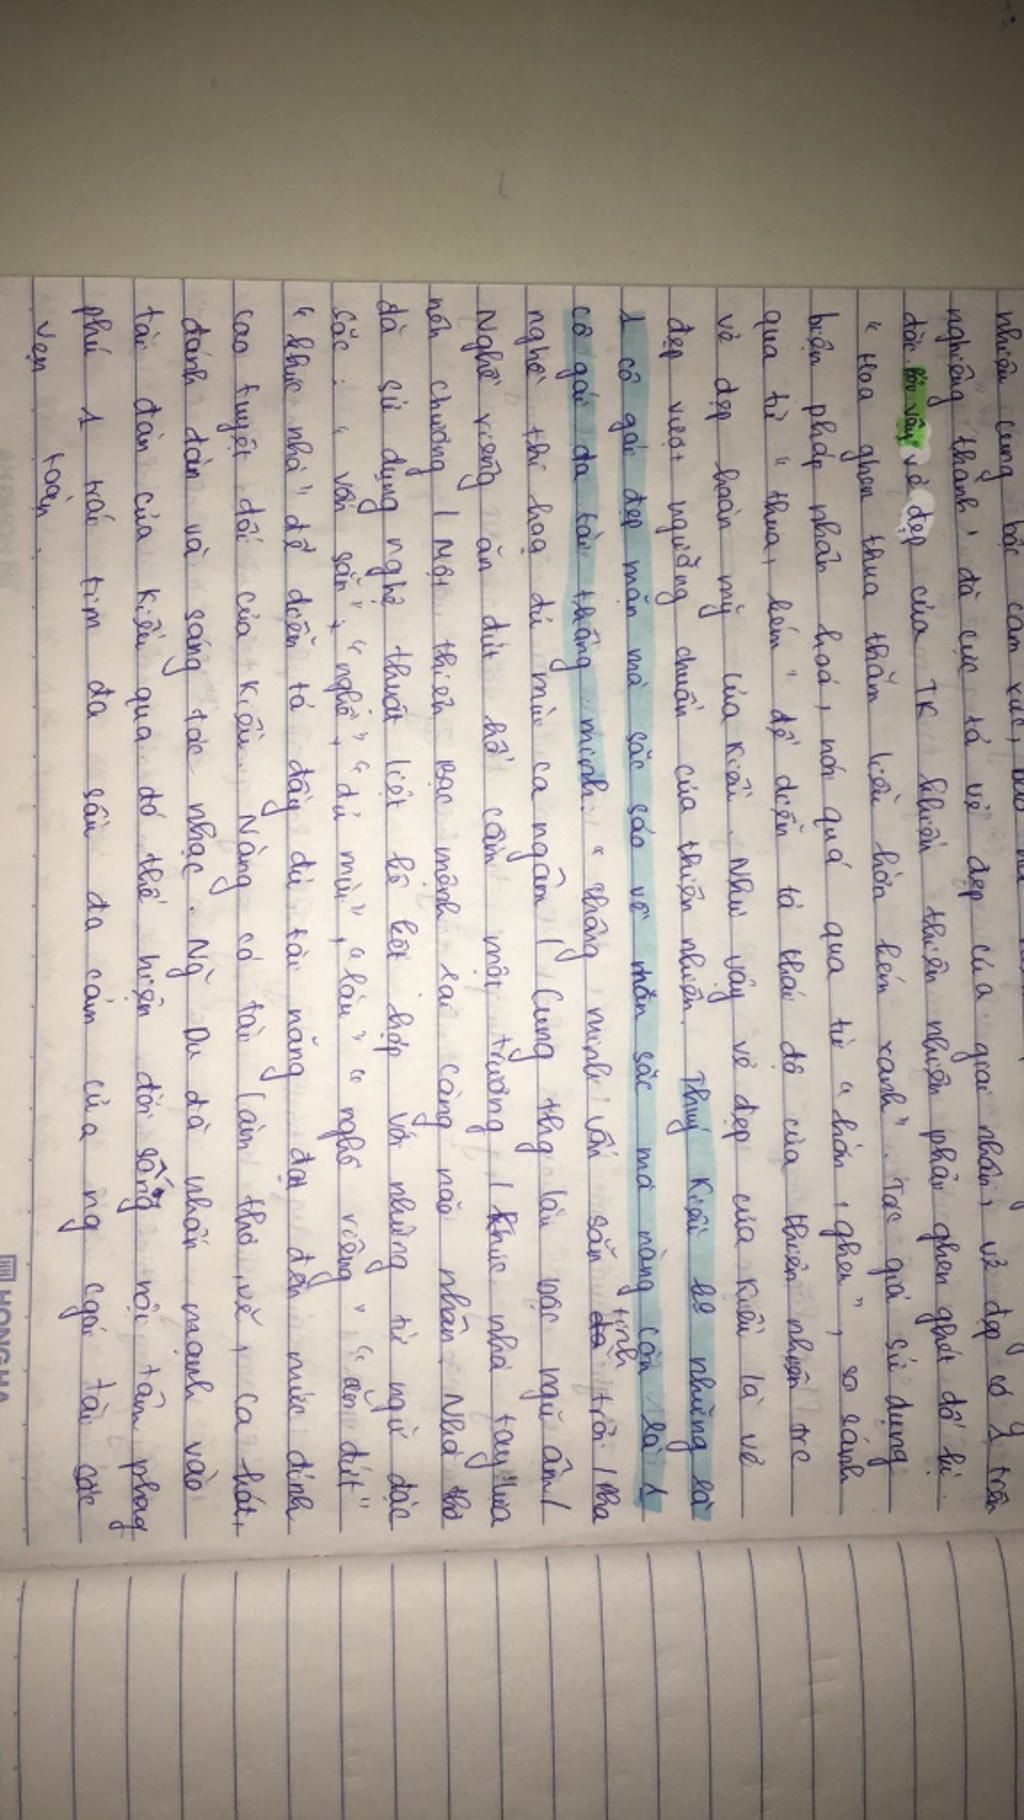 nhiêu cung bậc cảm xúc,
nghiêng thành" đã cực tả vẻ đẹp của giai nhân, vẻ đẹp có 1 trên
đời. Bởi vậy vẻ đẹp của TK khiến thiên nhiên phải ghen ghét đố kị.
"Hoa ghen thua thắm liễu hờn kém xanh". Tác giả sử dụng
biện pháp nhân hoá, nói quá qua từ "hờn, ghen", so sánh
qua từ "thua, kém" để diễn tả thái độ của thiên nhiên trc
vẻ đẹp hoàn mỹ của Kiều. Như vậy vẻ đẹp của Kiều là vẻ
đẹp vượt ngưỡng chuẩn của thiên nhiên. Thuý Kiều ko những là
1 cô gái đẹp mặn mà sắc sảo về nhan sắc mà nàng còn là 1
cô gái đa tài thông minh: "Thông minh vốn sẵn tính trời / Pha
nghề thi hoạ đủ mùi ca ngâm / Cung thg làu bậc ngũ âm /
Nghề riêng ăn đứt hồ cầm một trương / Khúc nhà tay lựa
nên chương / Một thiên Bạc mệnh lại càng não nhân". Nhà thơ
đã sử dụng nghệ thuật liệt kê kết hợp với những từ ngữ đặc
sắc: "vốn sẵn", "nghề", "đủ mùi", "làu" "nghề riêng" "ăn đứt"
"khúc nhà" để diễn tả đầy đủ tài năng đạt đến mức đỉnh
cao tuyệt đối của Kiều. Nàng có tài làm thơ, vẽ, ca hát,
đánh đàn và sáng tác nhạc. Ng Du đã nhấn mạnh vào
tài đàn của Kiều qua đó thể hiện đời sống nội tâm phong
phú 1 trái tim đa sầu đa cảm của ng cgái tài sắc
vẹn toàn.
HONGHA